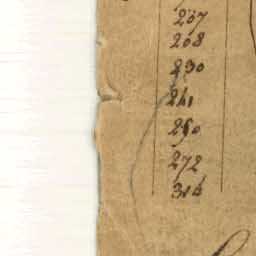 207
208
230
241
250
272
314